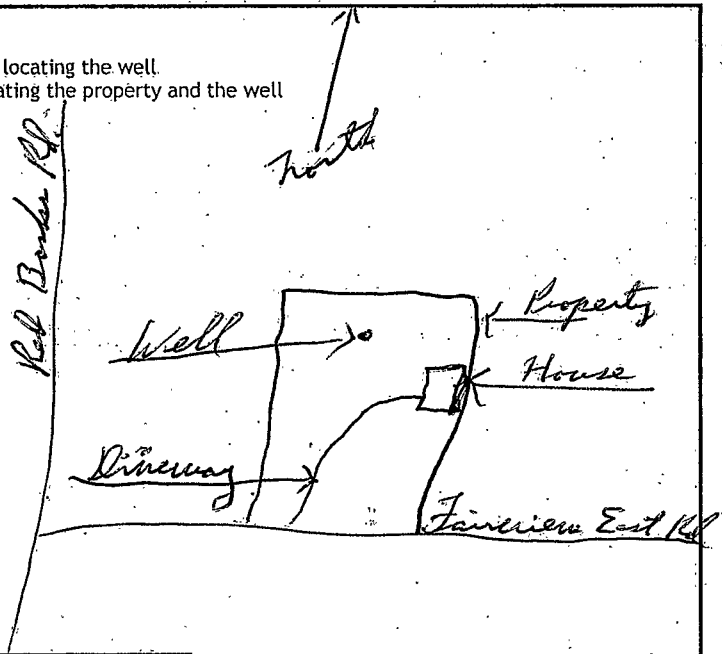 locating the well
ating the property and the well
north
Red Banks Rd.
Property
Well
House
Driveway
Fairview East Rd